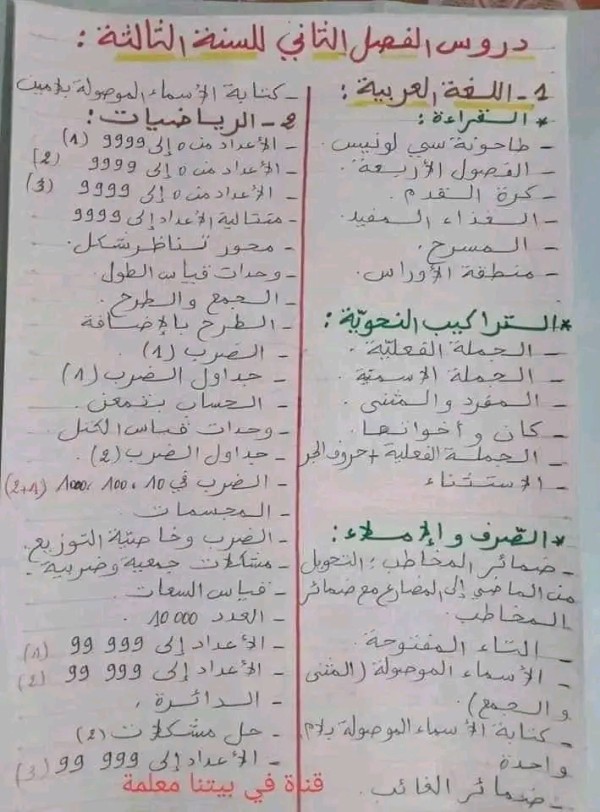 دروس الفصل الثاني للسنة الثالثة :
1 - اللغة العربية :
* القراءة :
- طاحونة سي لونيس.
- الفصول الأربعة.
- كرة القدم.
- الغذاء المفيد.
- المسرح.
- منطقة الأوراس.
* التراكيب النحويّة :
- الجملة الفعليّة.
- الجملة الاسميّة.
- المفرد و المثنى.
- كان و أخواتها.
- الجملة الفعلية + حروف الجر
- الاستثناء
* الصّرف و الإملاء :
- ضمائر المخاطب : التحويل
من الماضي إلى المضارع مع ضمائر
المخاطب.
- التاء المفتوحة.
- الأسماء الموصولة (المثنى
و الجمع).
- كتابة الأسماء الموصولة بلام
واحدة
- ضمائر الغائب.
- كتابة الأسماء الموصولة بلامين
2 - الرياضيات :
- الأعداد من 0 إلى 9999 (1)
- الأعداد من 0 إلى 9999 (2)
- الأعداد من 0 إلى 9999 (3)
- متتالية الأعداد إلى 9999
- محور تناظر شكل.
- وحدات قياس الطول.
- الجمع والطرح.
- الطرح بالإضافة
- الضرب (1).
- جداول الضرب (1)
- الحساب بتمعن.
- وحدات قياس الكتل
- جداول الضرب (2).
- الضرب في 10، 100، 1000 (1+2)
- المجسمات.
- الضرب وخاصية التوزيع.
- مشكلات جمعية وضربية.
- قياس السعات.
- العدد 10 000.
- الأعداد إلى 999 99 (1)
- الأعداد إلى 999 99 (2)
- الدائرة.
- حل مشكلات (2)
- الأعداد إلى 999 99 (3)
قناة في بيتنا معلمة